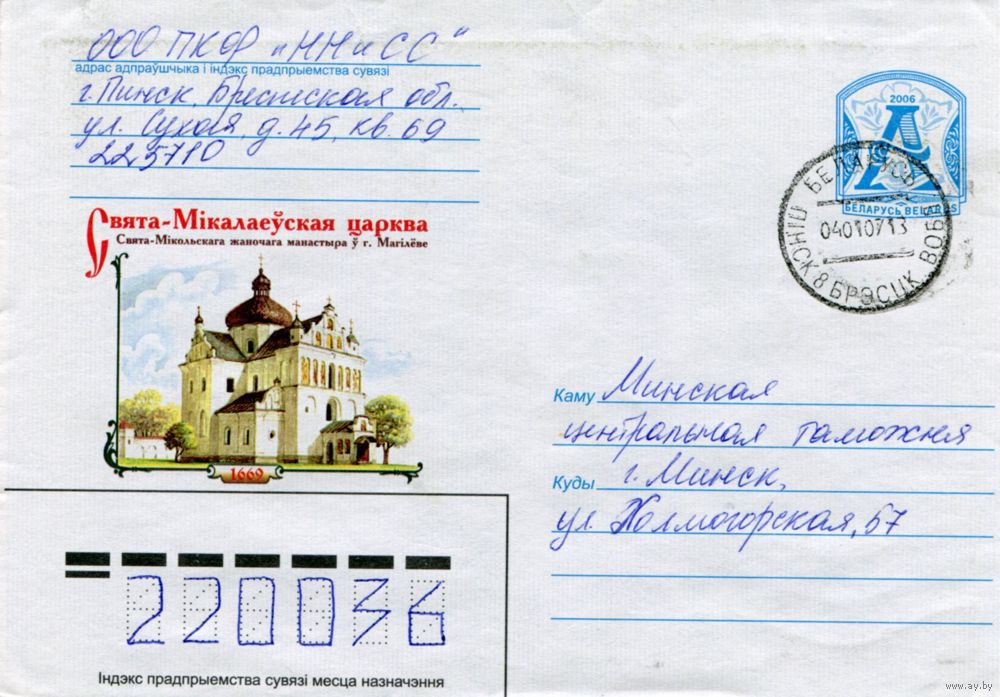 ООО ПКФ "НН и СС"
адрас адпраўшчыка і індэкс прадпрыемства сувязі
г. Пинск, Брестская обл.
ул. Сухая, д. 45, кв. 69
225710
Свята-Мікалаеўская царква
Свята-Мікольскага жаночага манастыра ў г. Магілёве
1669
2006
А
БЕЛАРУСЬ BELARUS
БЕЛАРУСЬ
040107 13
ПІНСК 8 БРЭСЦК ВОБЛ
Каму Минская
центральная таможня
Куды г. Минск,
ул. Холмогорская, 57
220036
Індэкс прадпрыемства сувязі месца назначэння
www.ay.by